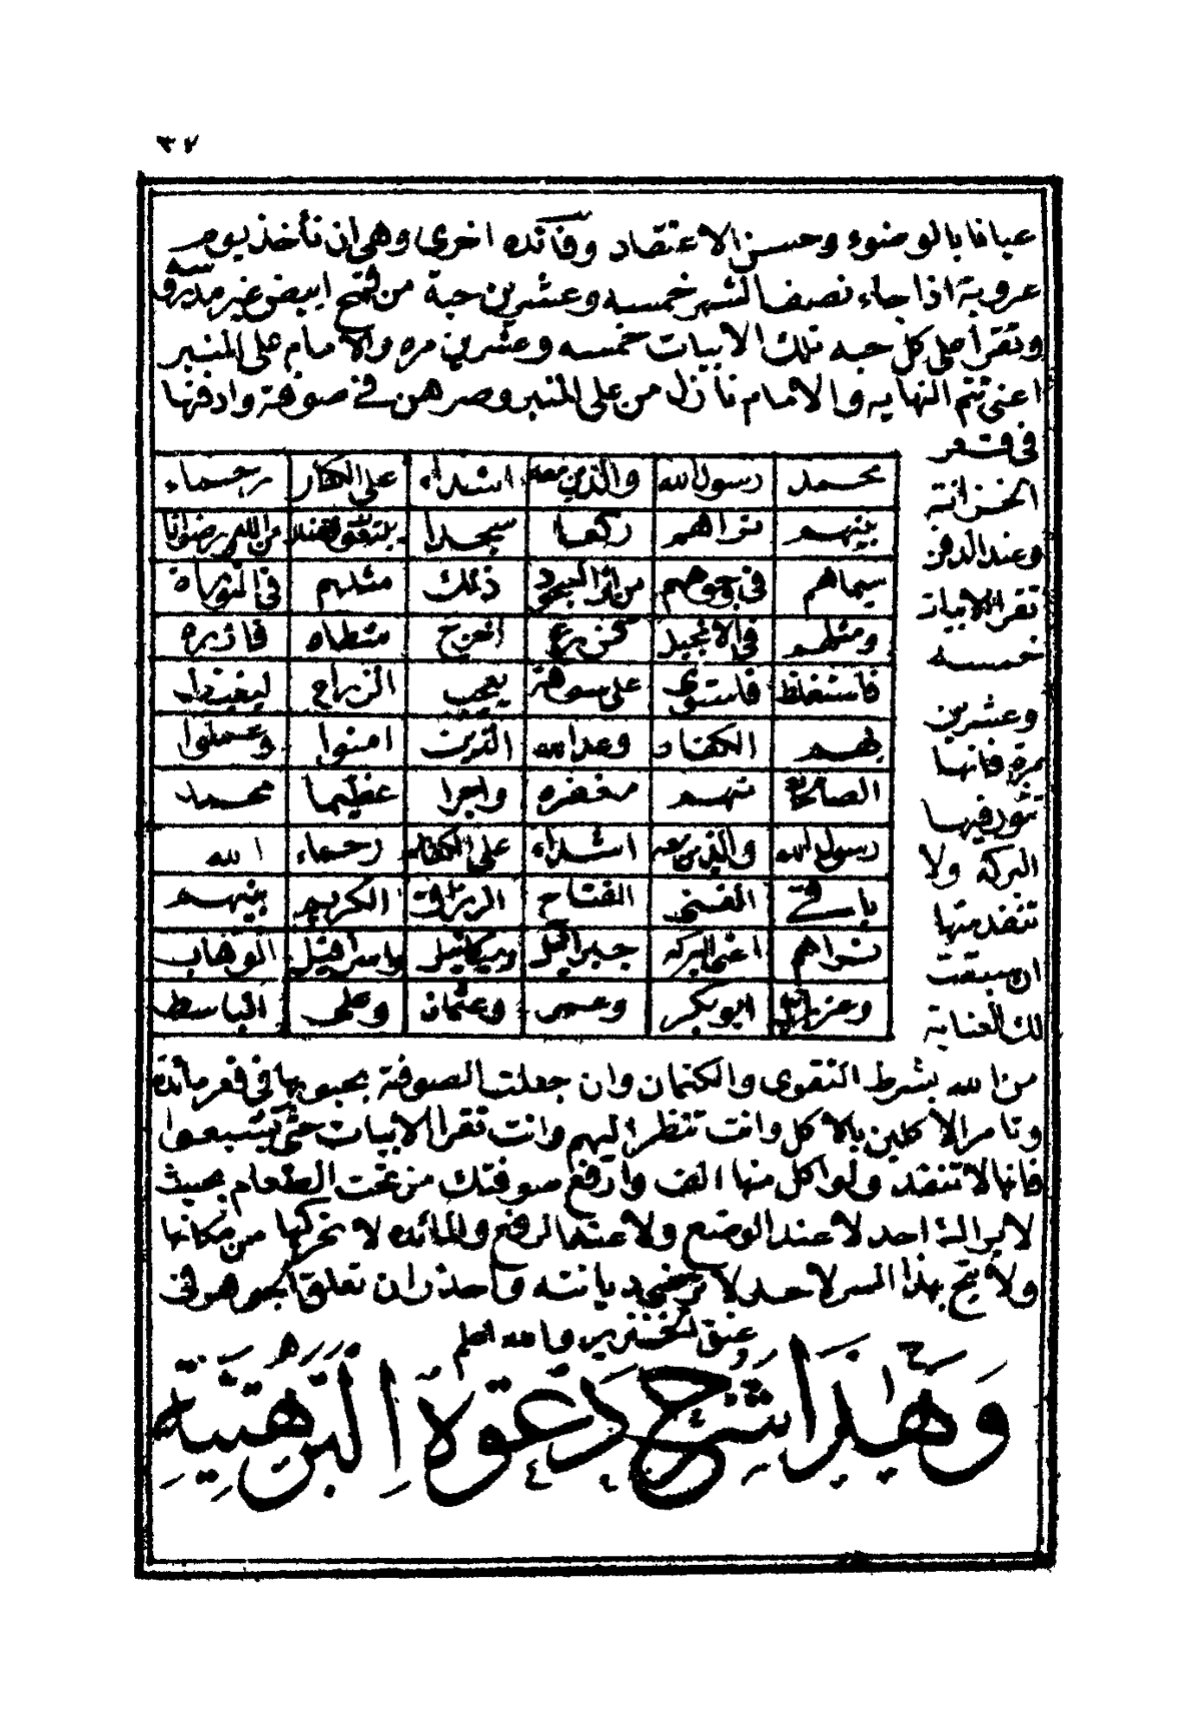 ٣٢
عيانا بالوضوء وحسن الاعتقاد وفائده اخرى وهي ان تأخذ يوم
عروبة اذا جاء نصف الشهر خمسه وعشرين حبة من قمح ابيض غير مدسوسه
وتقرأ على كل حبه تلك الابيات خمسه وعشرين مره والامام على المنبر
اعني تتم النهايه والامام نازل من على المنبر وصرهن في صوفة وادفنها
في قعر
الخزانة
وعند الدفن
تقرا الابيات
خمسه
وعشرين
مرة فانها
تثور فيها
البركه ولا
تنفد منها
ان سبقت
لك العناية
محمد رسول الله والذين معه اشداء على الكفار رحماء
بينهم تراهم ركعا سجدا يبتغون فضلا من الله ورضوانا
سيماهم في وجوههم من اثر السجود ذلك مثلهم في التوراة
ومثلهم في الانجيل كزرع اخرج شطاه فازره
فاستغلظ فاستوى على سوقه يعجب الزراع ليغيظ
بهم الكفار وعد الله الذين امنوا وعملوا
الصالحات منهم مغفره واجرا عظيما محمد
رسول الله والذين معه اشداء على الكفار رحماء الله
باقي الغني الفتاح الرزاق الكريم بينهم
تراهم البركه جبرائيل وميكائيل واسرافيل الوهاب
وعزرائيل ابوبكر وعمر وعثمان وعلى الباسط
من الله بشرط التقوى والكتمان وان جعلت الصوفة بحبوبها في قعر مائدة
وتامر الاكلين بالاكل وانت تنظر اليهم وانت تقرا الابيات حتى يشبعوا
فانها لا تنفد ولو اكل منها الف وارفع صوفتك من تحت الطعام بحيث
لا يراك احد لا عند الوضع ولا عند الرفع والمائده لا تحركها من مكانها
ولا تبح بهذا السر لاحد لا ترضى ديانته واحذر ان تعلق الجوهر في
عنق الخنزير والله اعلم
وَهٰذَا شَرْحُ دَعْوَةِ الْبَرْهَتِيَّةِ